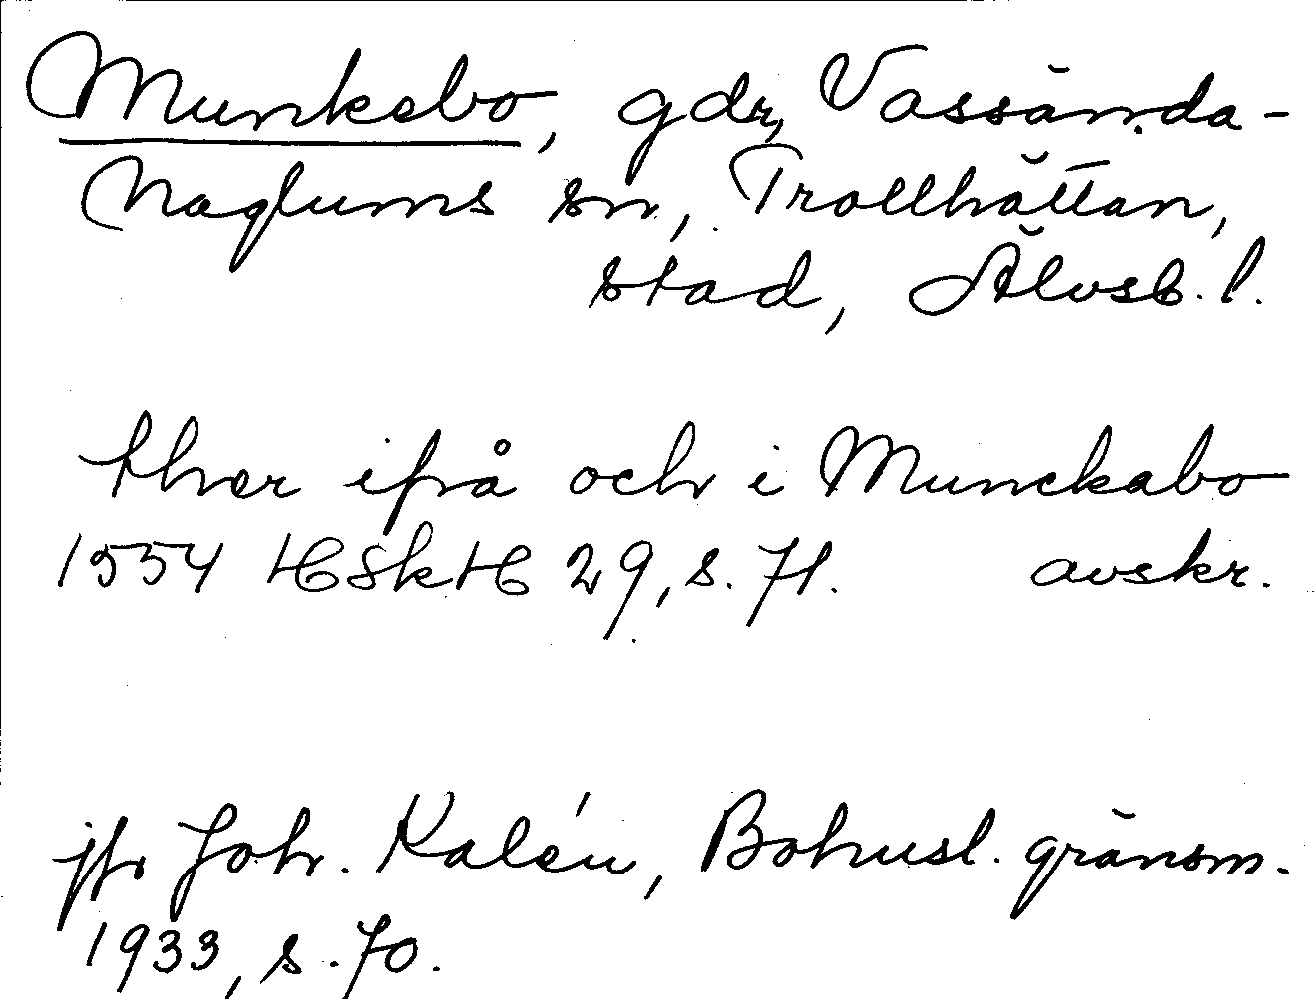 Munkebo, gdr, Vassända-
Naglums sn, Trollhättan,
stad, Älvsb. l.
thver ifrå och i Munckabo
1554 HSkH 29, s. 71. avskr.
jfr Joh. Kalén, Bohusl. gränsm.
1933, s. 70.